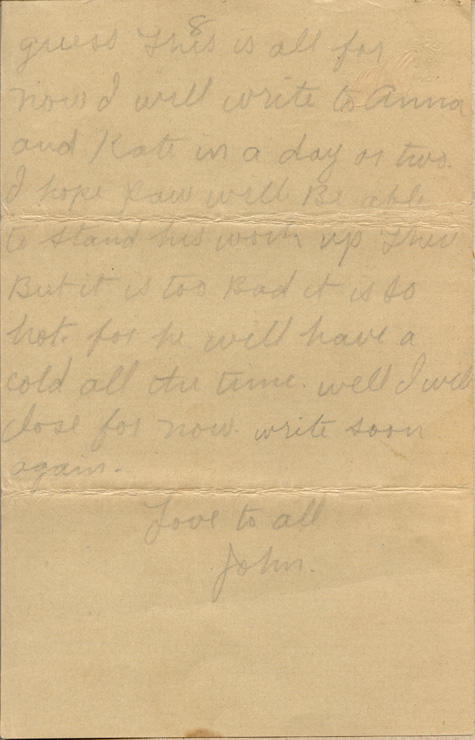 8
guess this is all for
now I will write to Anna
and Kate in a day or two.
I hope Paw will Be able
to stand his work up there
But it is too Bad it is so
hot. for he will have a
cold all the time. well I will
close for now. write soon
again.
Love to all
John.